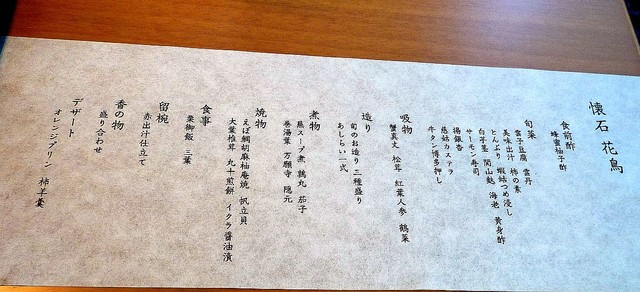 懐石 花鳥
食前酢
蜂蜜柚子酢
旬菜
雲子豆腐 雲丹
美味出汁 柿の素
とんぶり 蝦蛄つめ浸し
白芋茎 関山麩 海老 黄身酢
サーモン寿司
揚銀杏
慈姑カステラ
牛タン博多押し
吸物
蟹真丈 松茸 紅葉人参 鶴菜
造り
旬のお造り 三種盛り
あしらい一式
煮物
蕪スープ煮 鶉丸 茄子
巻湯葉 万願寺 隠元
焼物
えぼ鯛胡麻柚庵焼 帆立貝
大葉椎茸 丸十煎餅 イクラ醤油漬
食事
栗御飯 三葉
留椀
赤出汁仕立て
香の物
盛り合わせ
デザート
オレンジプリン 柿羊羹